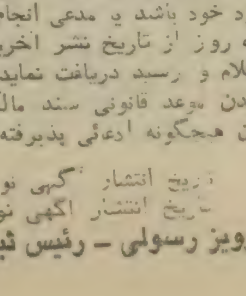 د خود باشد یا مدعی انجام
ه روز از تاریخ نشر اخری
لام و رسید دریافت نماید
دن موعد قانونی سند مال
هیچگونه ادعائی پذیرفته
تاریخ انتشار آگهی نو
تاریخ انتشار اگهی نو
رویز رسولی – رئیس ثب